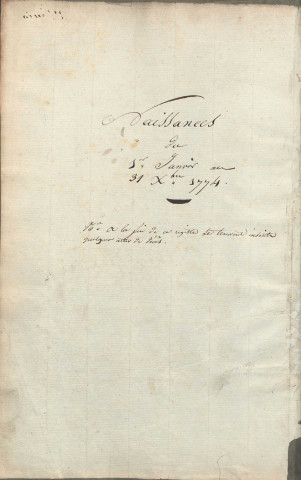 Naissances
du
1er Janvier au
31 Xbre 1774.
Na. A la fin de ce registre se trouvent insérés
quelques actes de décès.